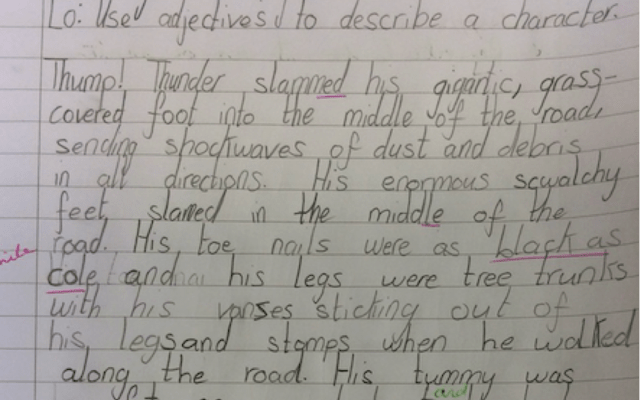 Lo: Use adjectives to describe a character.
Thump! Thunder slammed his gigantic, grass-
covered foot into the middle of the road,
sending shockwaves of dust and debris
in all directions. His enormous sqwalchy
feet slamed in the middle of the
road. His toe nails were as black as
cole and his legs were tree trunks
with his vanses sticking out of
his legsand stomps when he walked
along the road. His tummy was
and